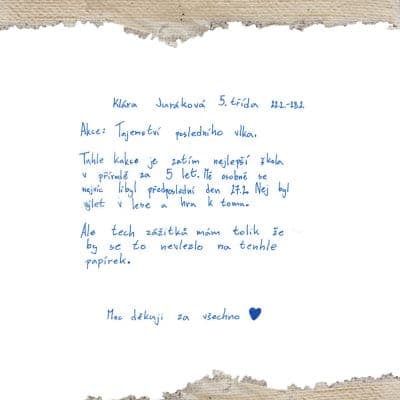 Klára Juráková 5. třída 22.2.-28.2.
Akce: Tajemství posledního vlka.
Tahle kakce je zatím nejlepší škola
v přírodě za 5 let. Mě osobně se
nejvíc libyl předposlední den 27.2. Nej byl
výlet v lese a hra k tomu.
Ale tech zážitků mám tolik že
by se to nevlezlo na tenhle
papírek.
Moc děkuji za všechno